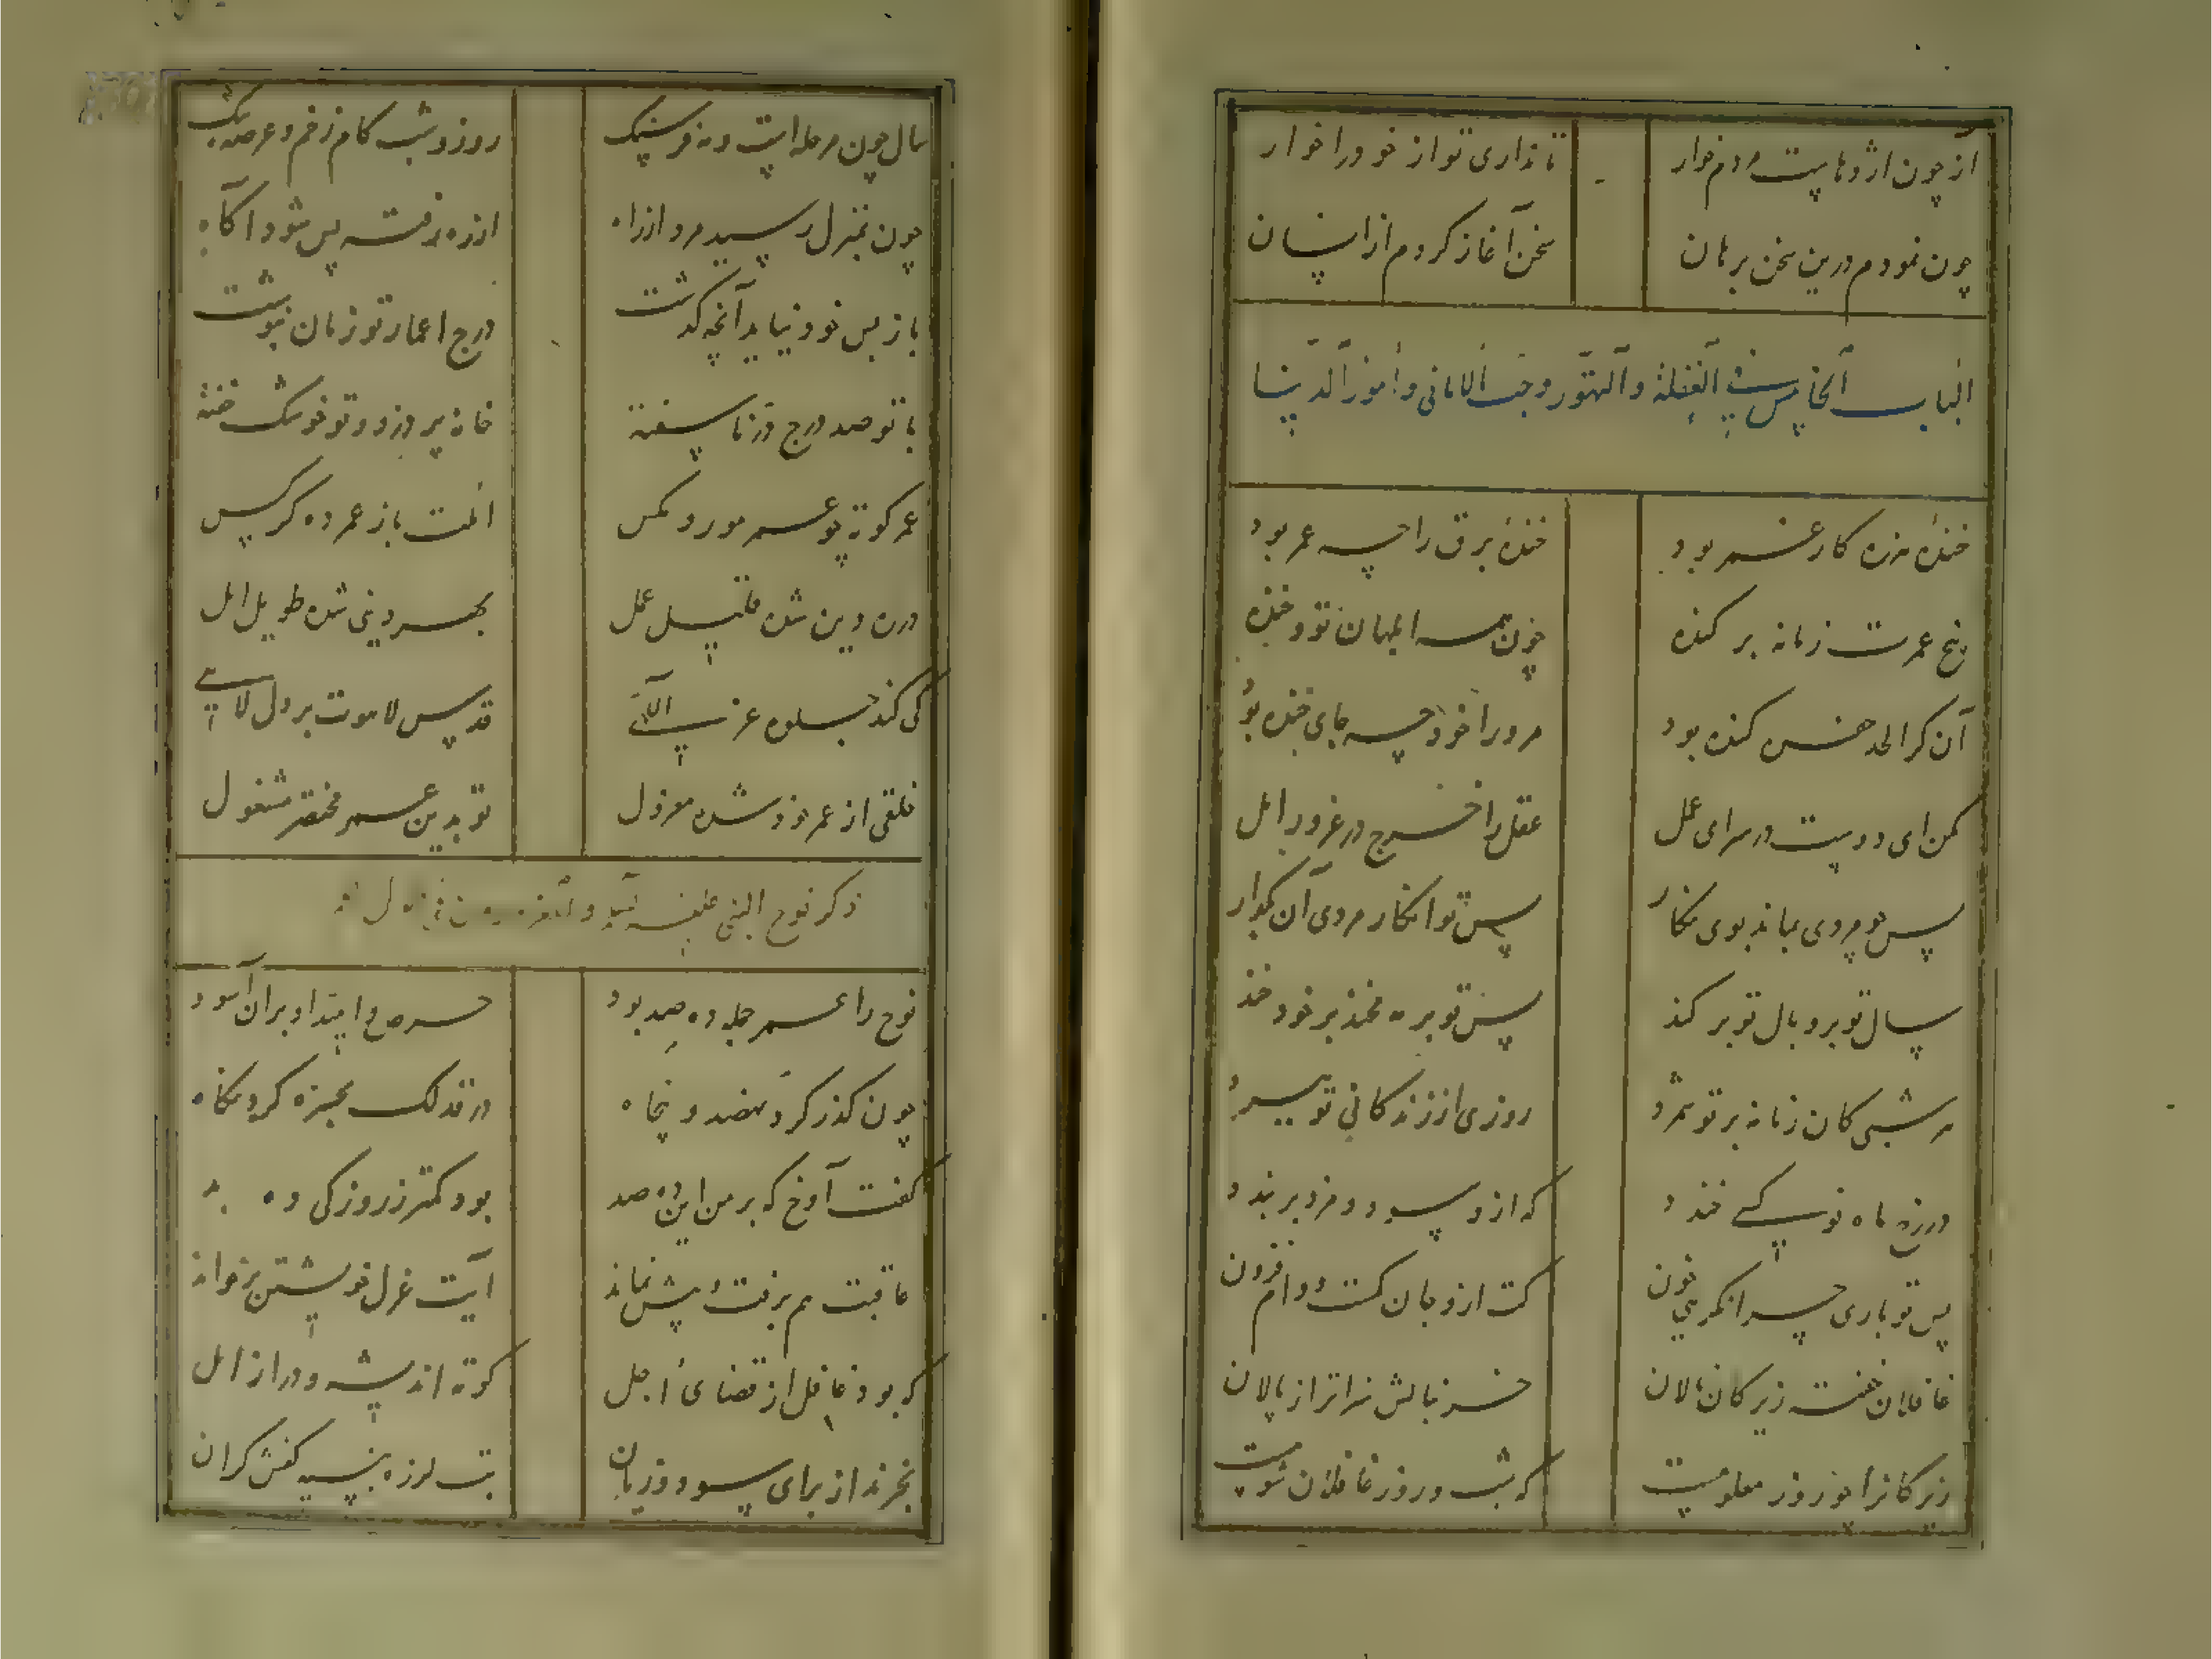 آز چون اژدهاییست مردم خوار
تا نداری تو از خود را خوار
چون نمودم درین سخن برهان
سخن آغاز کردم از انسان
الباب الخامس فی الغفلة و التهور و حب الامانی و امور الدنیا
خندهٔ هرزه کار غمر بود
خندهٔ برق را چه عمر بود
بیخ عمرت زمانه برکنده
چون همه ابلهان تو در خنده
آن کرا لحد کنده بود
مرد را خود چه جای خنده بود
مکن ای دوست در سرای عمل
عقل را خرج در غرور امل
پس چو مردی بماند بوی مکار
پس تو انکار مردی آن بکذار
سال تو پر و بال تو برکند
پس تو بر مخند بر خود خند
هر شبی کان زمانه بر تو شمرد
روزی از زندکانی تو ببرد
درزه ماه نو کسی خندد
که ازو سود و مزد بربندد
پس تو باری چرا نکریی خون
کت ازو جان کست و دام فزون
غافلان خفته زیرکان نالان
خر نبالش سزاتر از پالان
زیرکانرا چو روز معلومست
که شب و روز غافلان شومست
سال چون مرحله است و مه فرسنک
روز و شب کام زخم و عرصه تنک
چون بمنزل رسید مرد از راه
از ره رفته پس شود آکاه
باز پس خود نیاید آنچه کذشت
درج اعمار تو زمان بنوشت
با تو صد درج در ناسفته
خانه پر دزد و تو خوشک خفته
عمر کوته چو عمر مور و مکس
املت باز عمر ده کرکس
در ره دین شده قلیل عمل
بهر دنیی شده طویل امل
کی کند جلوه عز الاالله
قدس لاهوت بر دل لاهی
خلقی از عمر خود شده معزول
تو بدین عمر مختصر مشغول
ذکر نوح النبی علیه
نوح را عمر جمله ده صد بود
حرص و امید او بران آسود
چون کذر کرد نهصد و پنجاه
در فذلک بحیره کرد نکاه
کفت آوخ که بر من این ده صد
بود کمتر ز روزکی ده
عاقبت هم برفت و بیش نماند
آیت عزل خویشتن برخواند
که بود غافل از قضای اجل
کوته اندیشه و دراز امل
نخرند از برای سود و زیان
تب لرزه بنسیه کفش کران